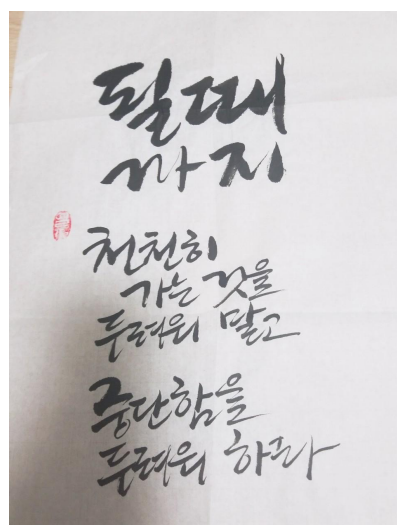 될때
까지
천천히
가는 것을
두려워 말고
중단함을
두려워 하라